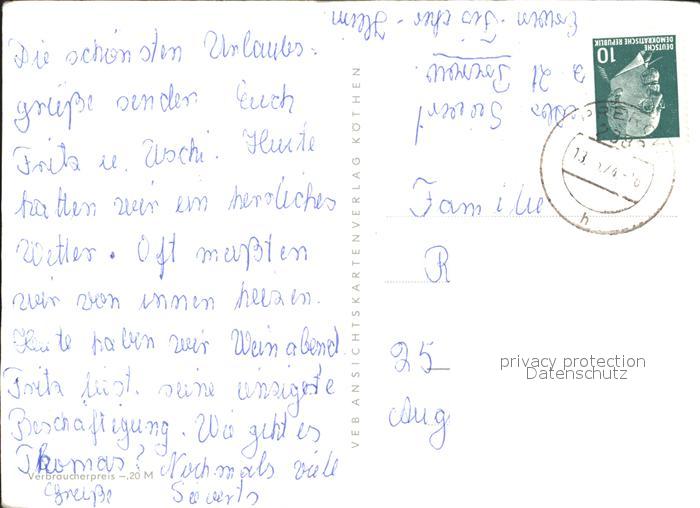 Die schönsten Urlaubs-
grüße senden Euch
Fritz u. Uschi. Heute
hatten wir ein herrliches
Wetter. Oft mußten
wir von innen heizen.
Heute haben wir Weinabend
Fritz liest. seine einzigste
Beschäftigung. Wie geht es
Thomas? Nochmals viele
Grüße Sieverts
Verbraucherpreis –,20 M
VEB ANSICHTSKARTENVERLAG KÖTHEN
DEUTSCHE
DEMOKRATISCHE REPUBLIK
10
Familie
R
25
Aug
privacy protection
Datenschutz